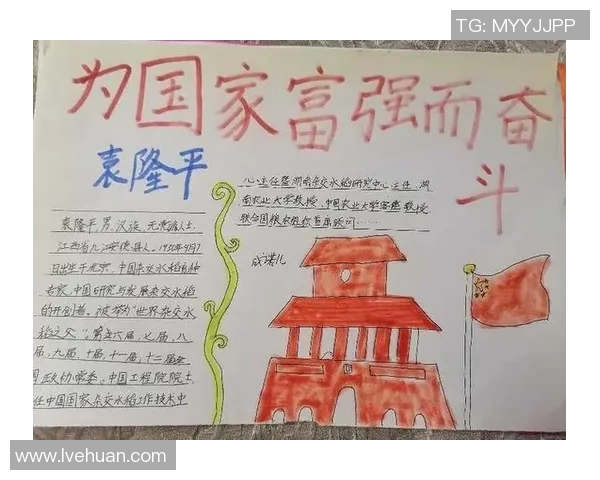 TG: MYYJJPP
为国家富强而奋
斗
袁隆平
袁隆平,男,汉族,无党派人士,
江西省九江安德县人。1930年9月7
日出生于北京,中国杂交水稻育种
专家,中国研究与发展杂交水稻
的开创者。被誉为“世界杂交水
稻之父”。第五、六届,七届,八
届,九届,十届,十一届,十二届全
国政协常委。中国工程院院士,
任中国国家杂交水稻工作技术中
心主任暨湖南杂交水稻研究中心主任,湖
南农业大学教授,中国农业大学客座教授,
联合国粮农组织首席顾问……
成诺儿
www.lvehuan.com